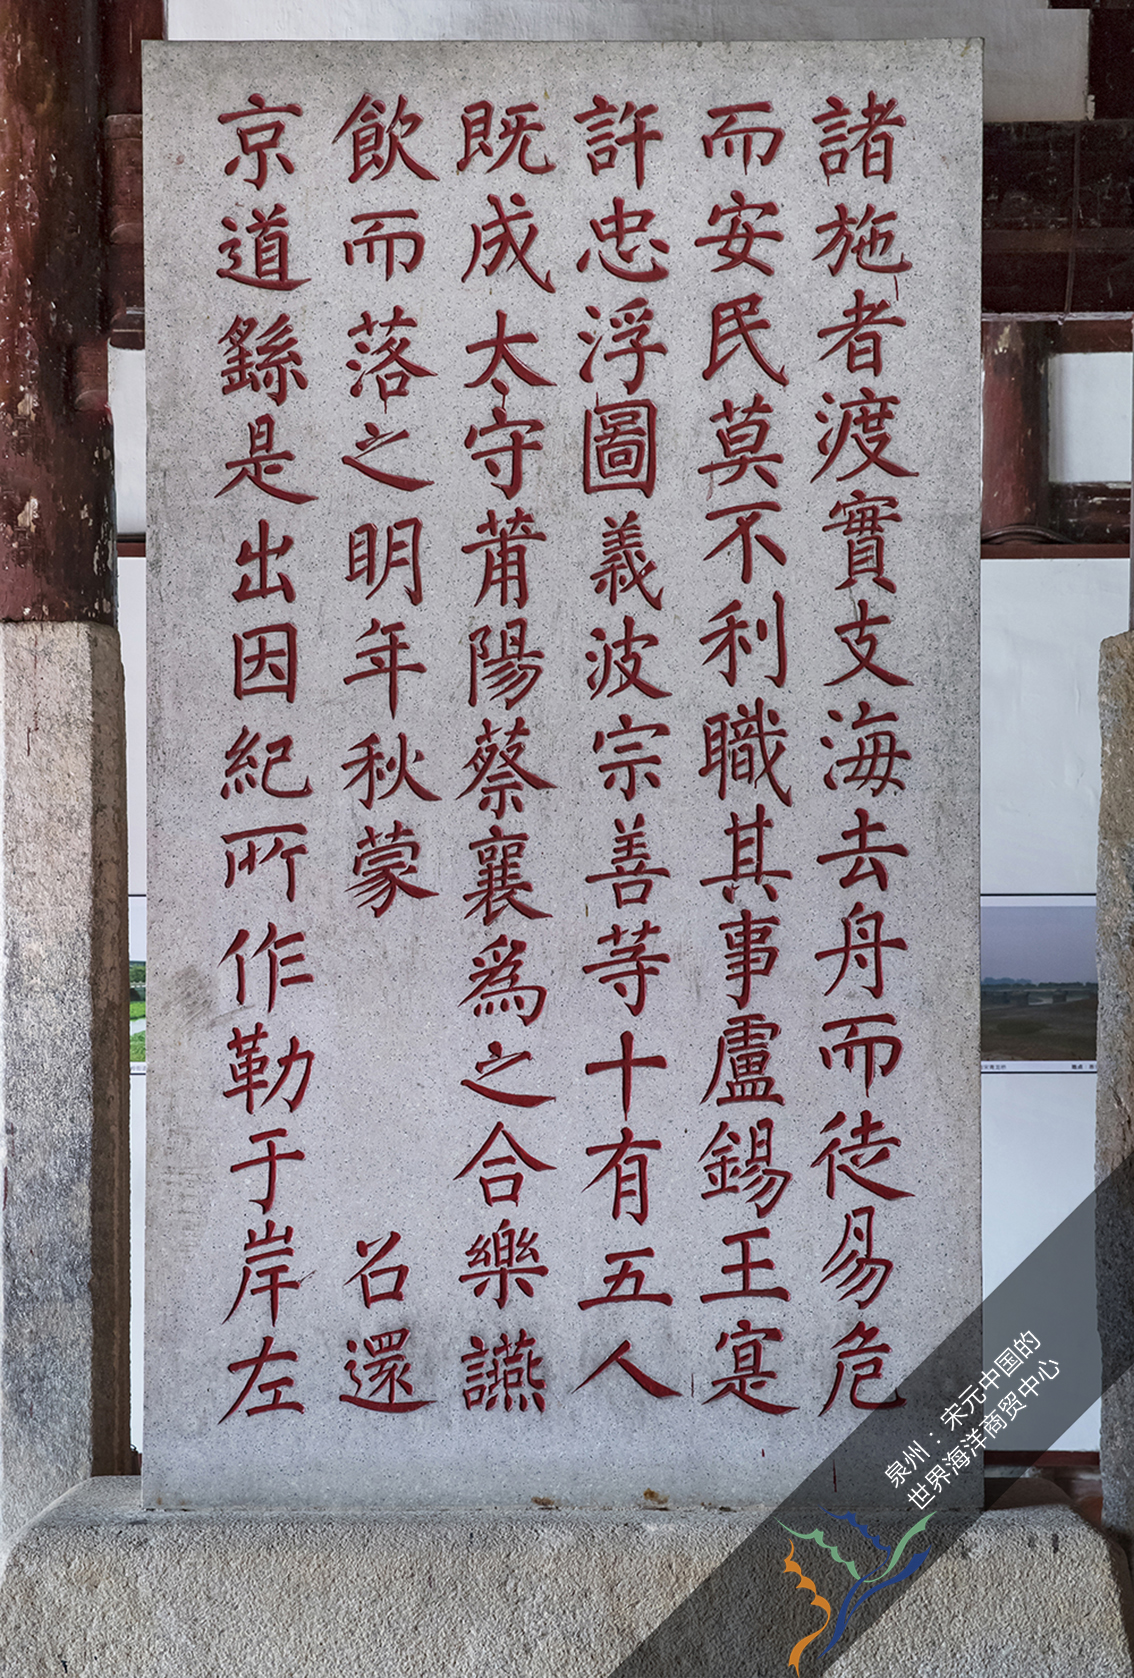 諸施者渡實支海去舟而徒易危
而安民莫不利職其事盧錫王寔
許忠浮圖義波宗善等十有五人
既成大守莆陽蔡襄為之合樂讌
飲而落之明年秋蒙 召還
京道繇是出因紀所作勒于岸左
泉州：宋元中国的
世界海洋商贸中心